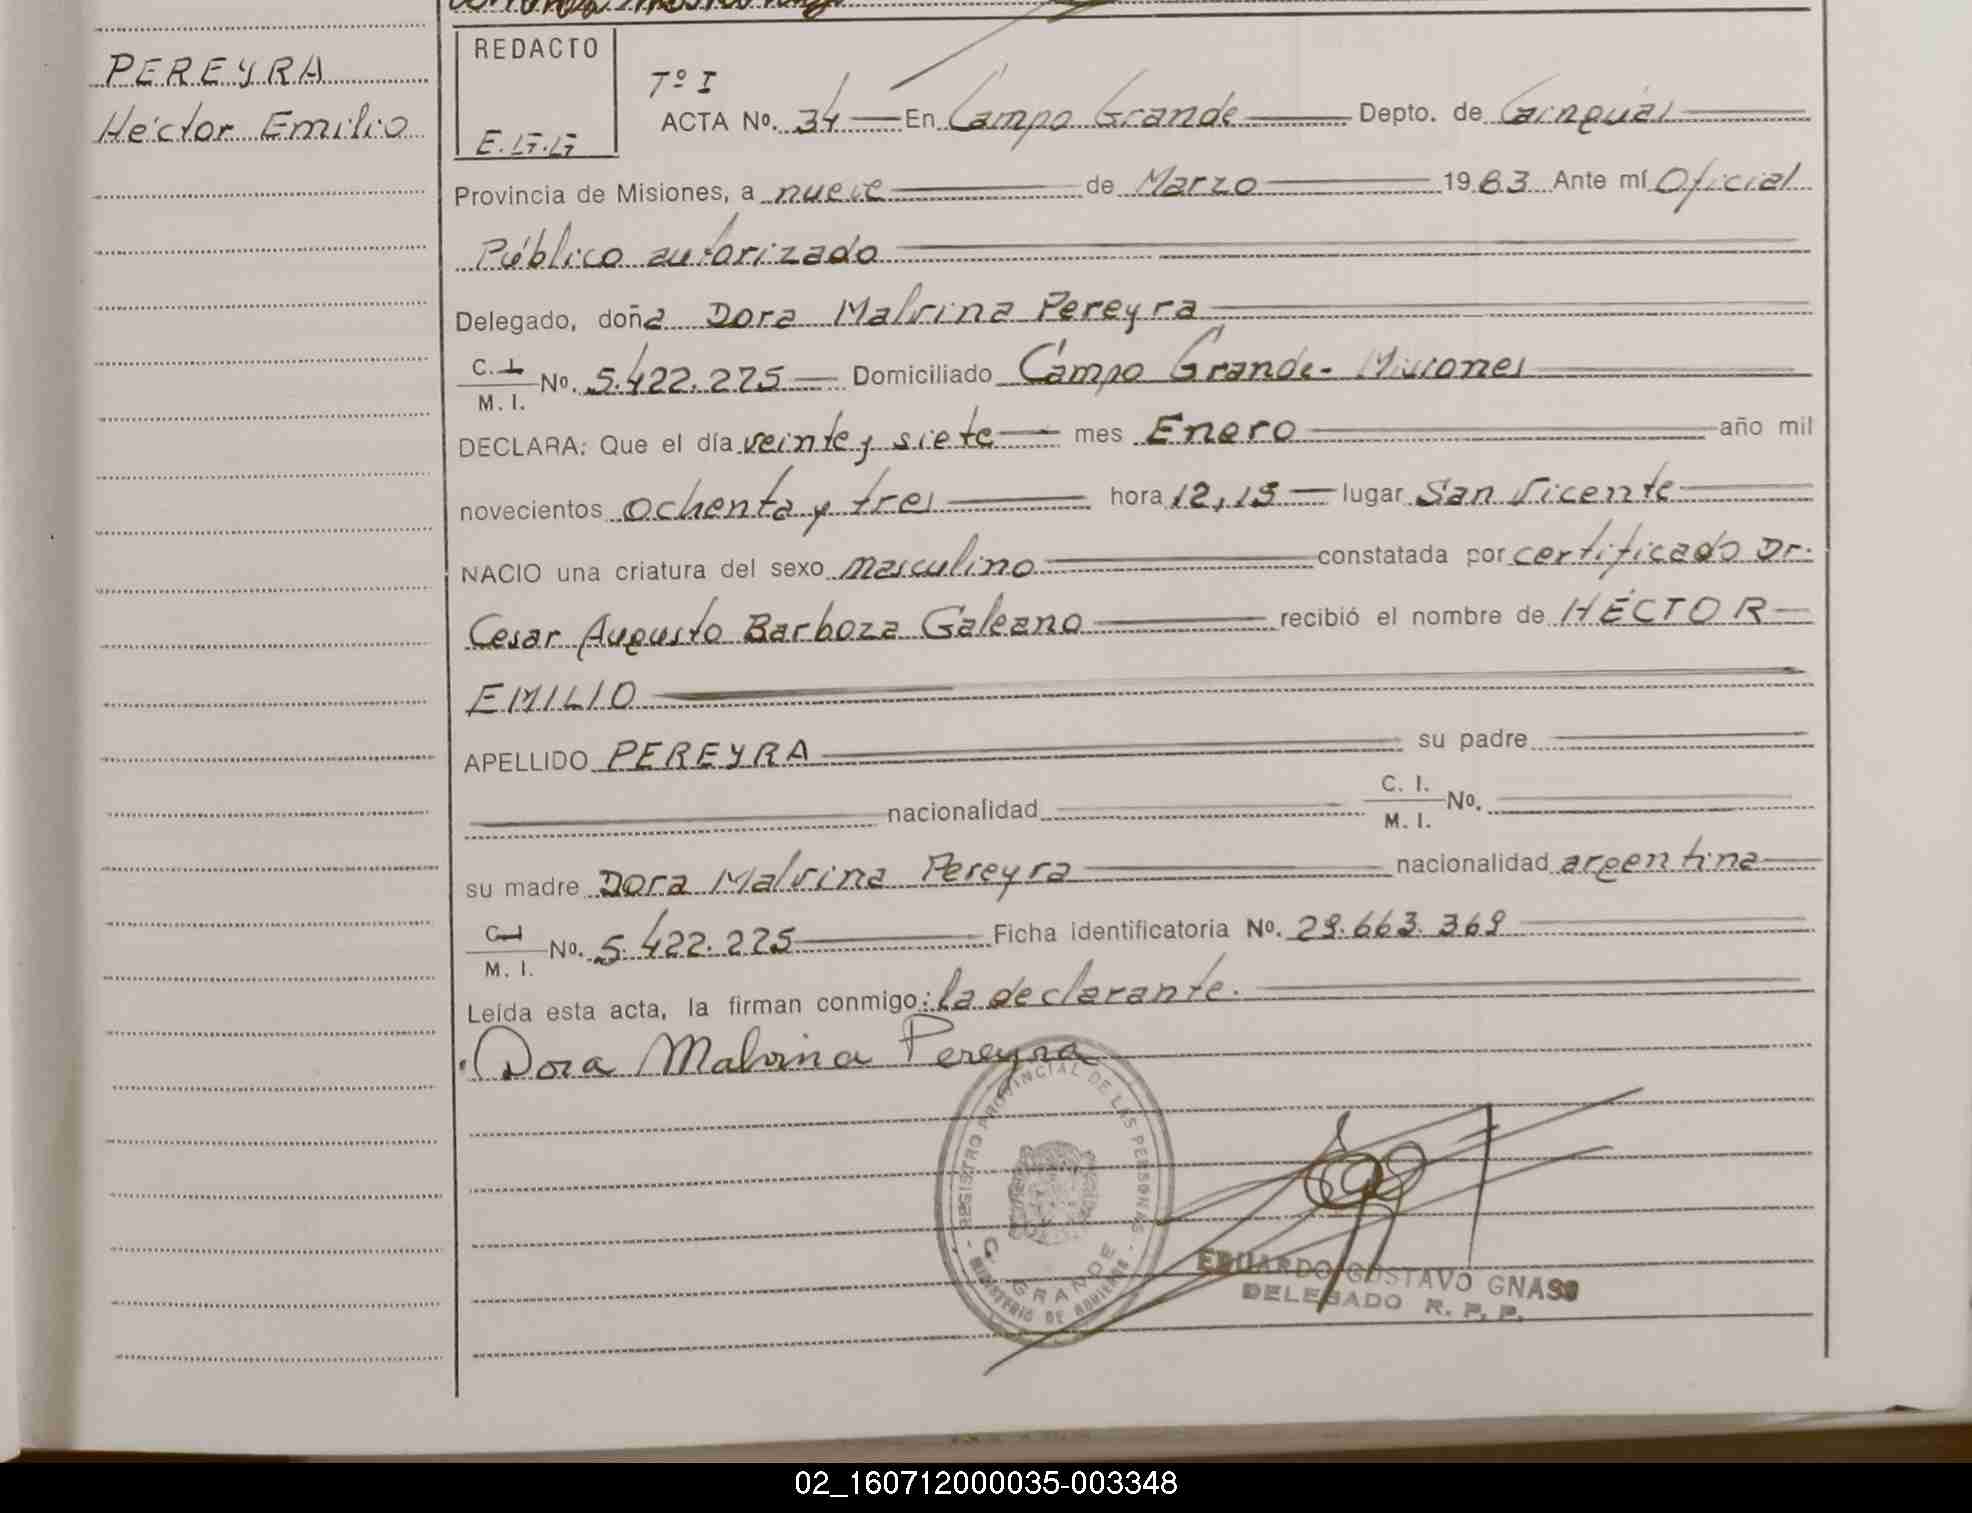 PEREYRA
Héctor Emilio
REDACTO
E.G.G
Tº I
ACTA Nº. 34 En Campo Grande Depto. de Cainguás
Provincia de Misiones, a nueve de Marzo 1983 Ante mí Oficial
Público autorizado
Delegado, doña Dora Malvina Pereyra
C. I. M. I. Nº. 5.422.225 Domiciliado Campo Grande - Misiones
DECLARA: Que el día veinte y siete mes Enero año mil
novecientos ochenta y tres hora 12,15 lugar San Vicente
NACIO una criatura del sexo masculino constatada por certificado Dr.
Cesar Augusto Barboza Galeano recibió el nombre de HÉCTOR
EMILIO
APELLIDO PEREYRA su padre
nacionalidad C. I. M. I. Nº.
su madre Dora Malvina Pereyra nacionalidad argentina
C. I. M. I. Nº. 5.422.225 Ficha identificatoria Nº. 29.663.369
Leída esta acta, la firman conmigo: la declarante.
Dora Malvina Pereyra
REGISTRO PROVINCIAL DE LAS PERSONAS
C. GRANDE
MINISTERIO DE GOBIERNO
EDUARDO GUSTAVO GNASS
DELEGADO R. P. P.
02_160712000035-003348